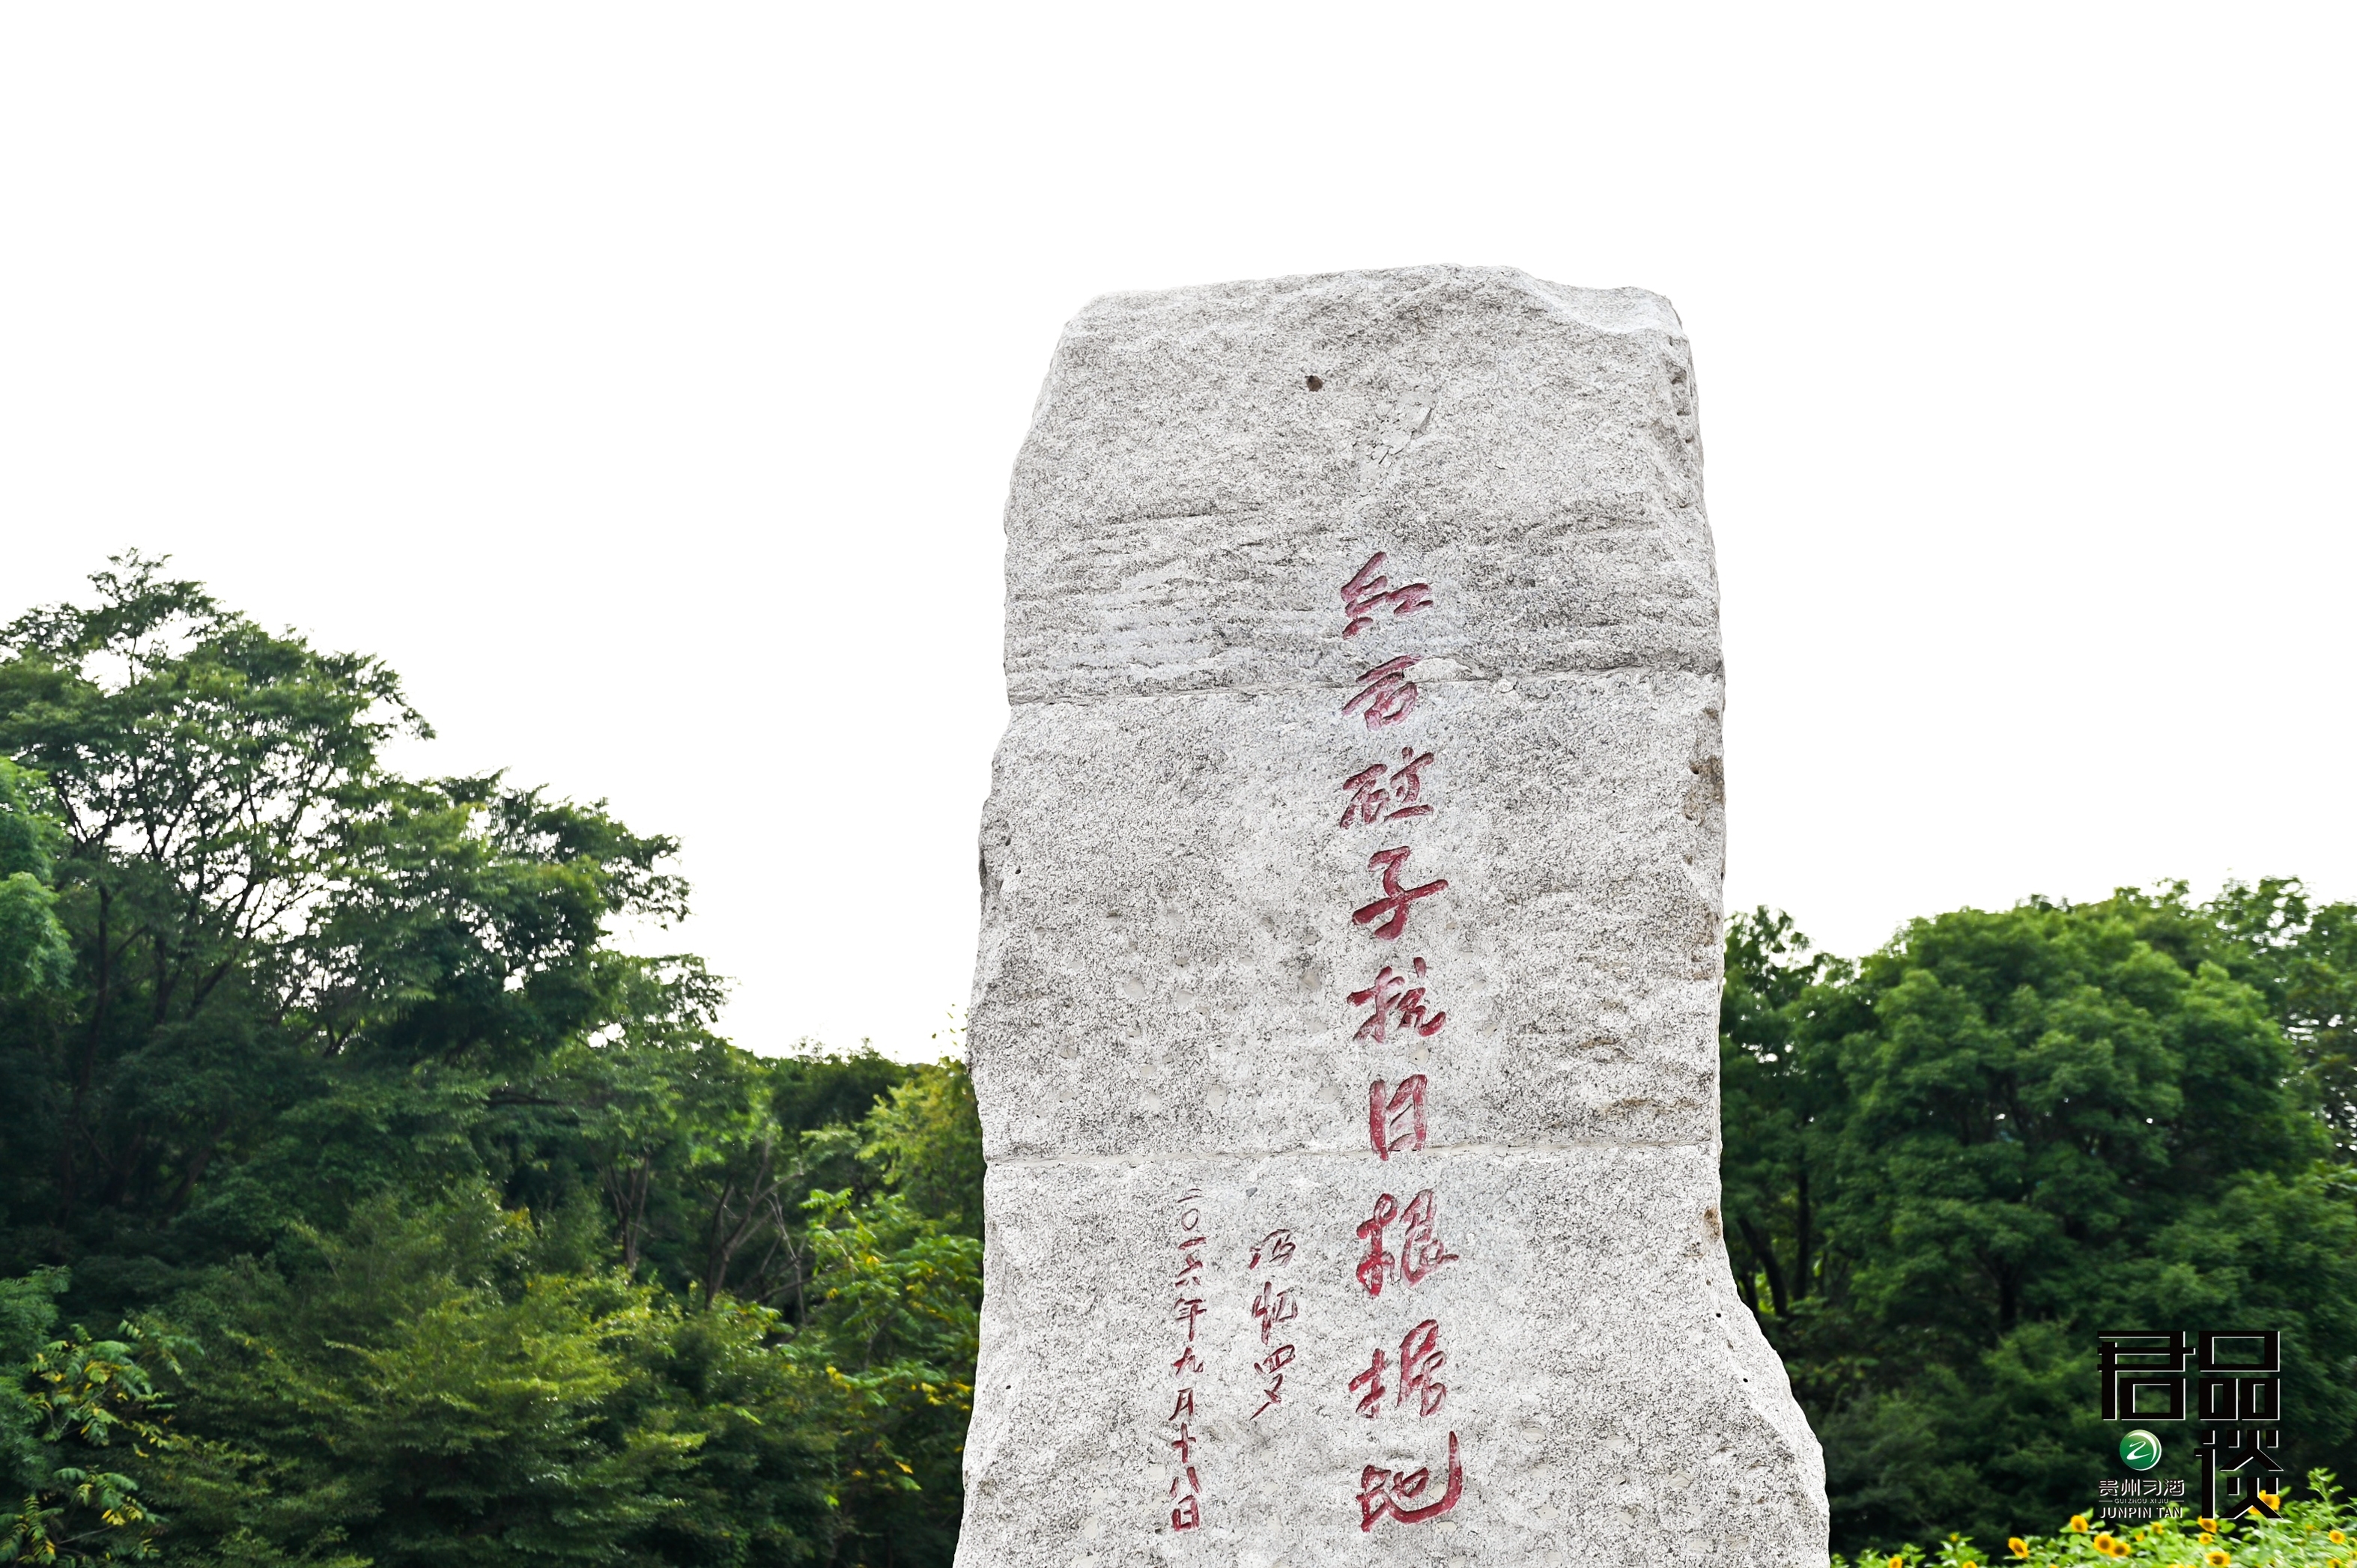 红石砬子抗日根据地
冯忆罗
二〇一六年九月十八日
君品谈
贵州习酒
GUI ZHOU XI JIU
JUNPIN TAN